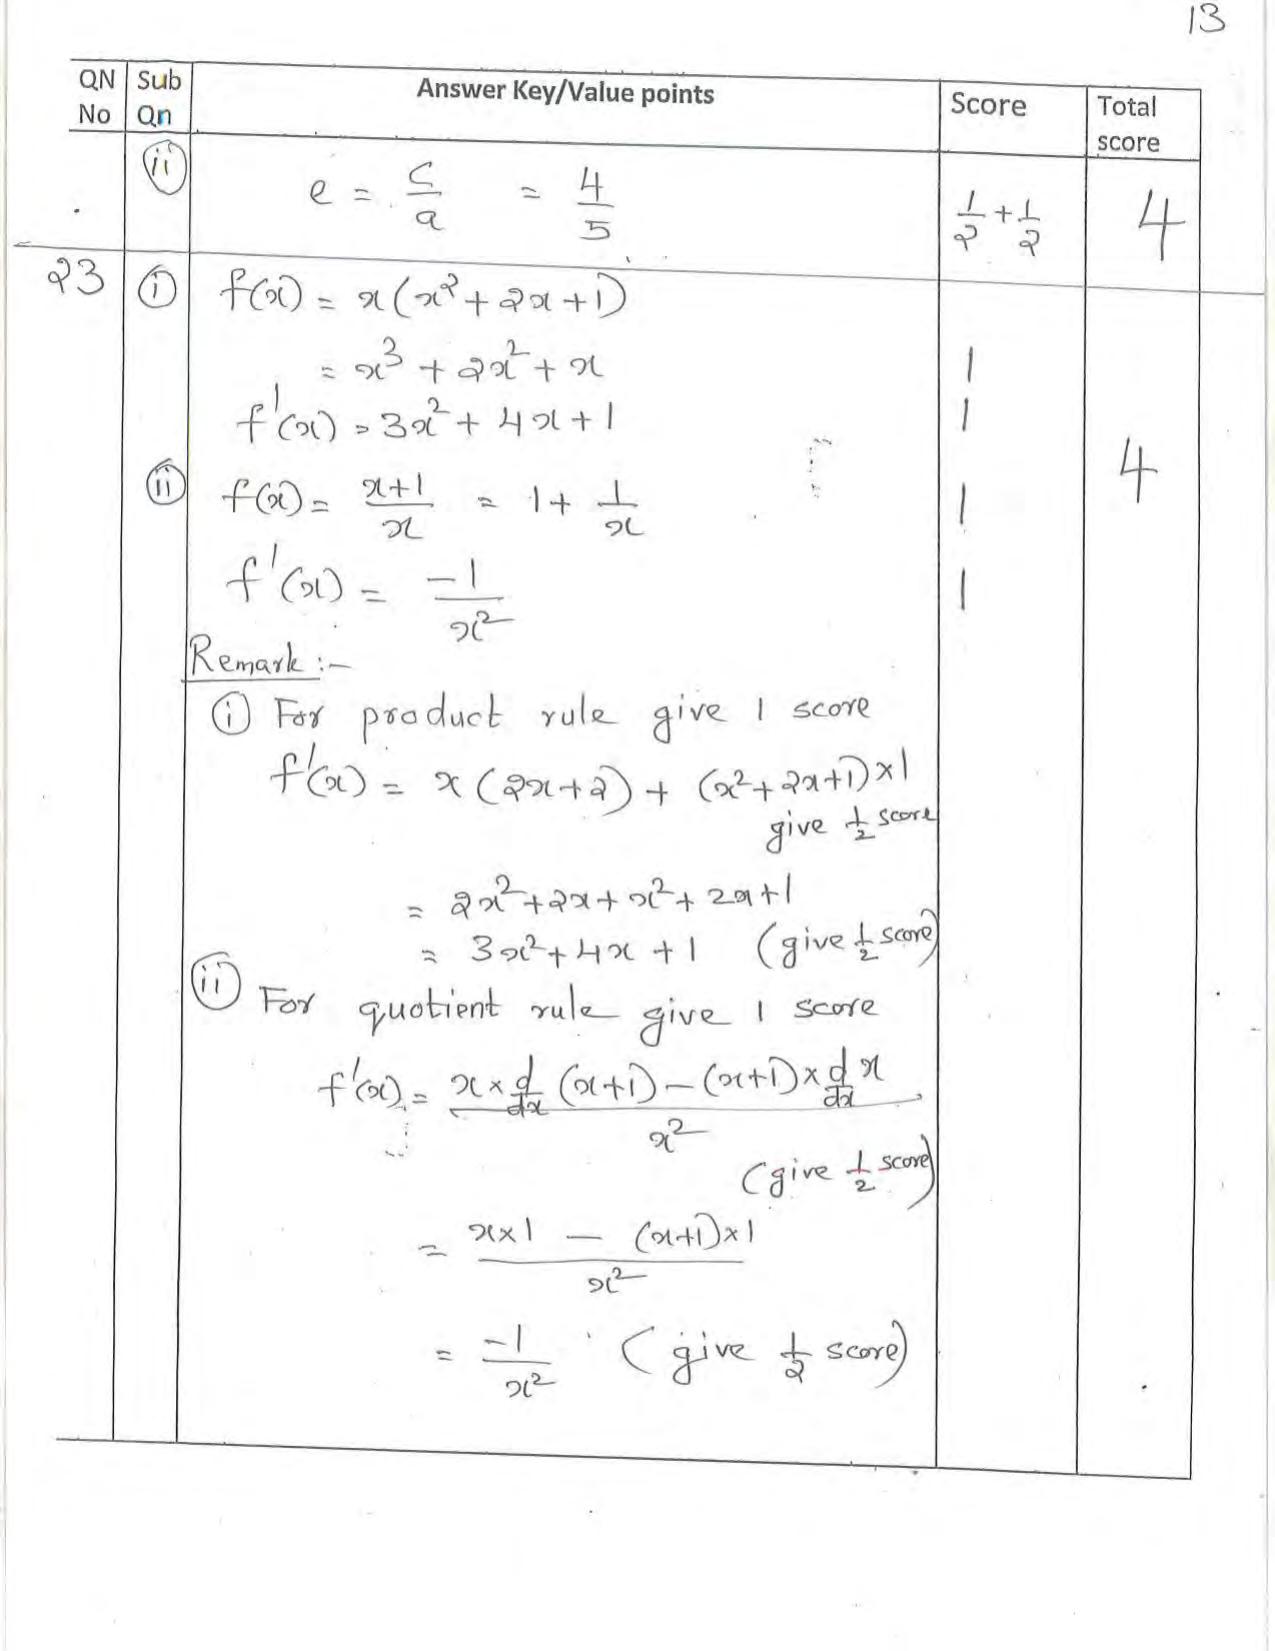 13
QN No | Sub Qn | Answer Key/Value points | Score | Total score
ii e = c/a = 4/5 1/2 + 1/2 4
23 i f(x) = x(x² + 2x + 1)
= x³ + 2x² + x 1
f'(x) = 3x² + 4x + 1 1
4
ii f(x) = (x+1)/x = 1 + 1/x 1
f'(x) = -1/x² 1
Remark :-
i For product rule give 1 score
f'(x) = x(2x+2) + (x²+2x+1)×1
give 1/2 score
= 2x²+2x+x²+2x+1
= 3x²+4x+1 (give 1/2 score)
ii For quotient rule give 1 score
f'(x) = (x × d/dx (x+1) - (x+1) × d/dx x)/x²
(give 1/2 score)
= (x×1 - (x+1)×1)/x²
= -1/x² (give 1/2 score)